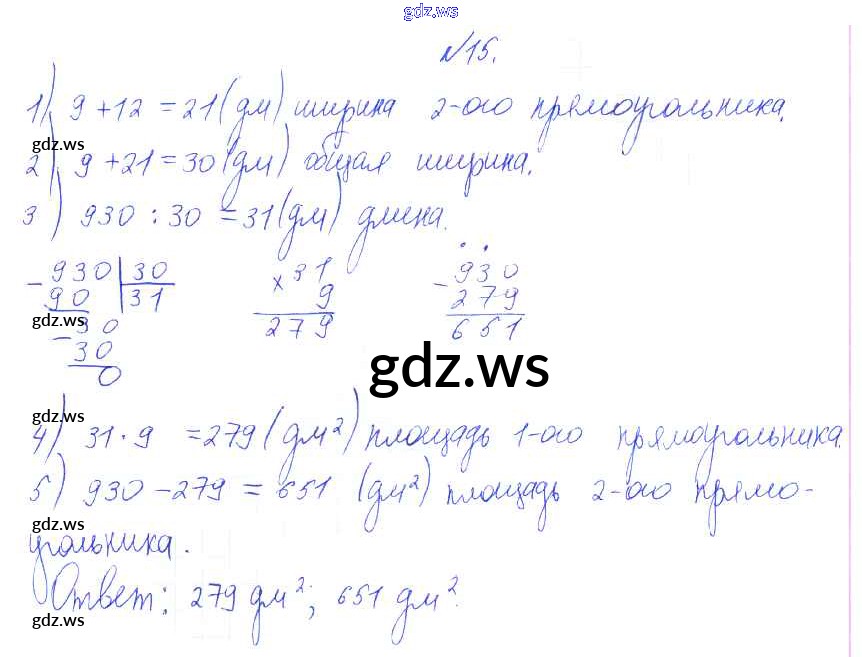 gdz.ws
№15.
1) 9 + 12 = 21 (дм) ширина 2-ого прямоугольника.
gdz.ws
2) 9 + 21 = 30 (дм) общая ширина.
gdz.ws
3) 930 : 30 = 31 (дм) длина.
- 930 | 30
90 | 31
gdz.ws
- 30
30
0
× 31
9
279
- 930
279
651
gdz.ws
gdz.ws
4) 31 · 9 = 279 (дм²) площадь 1-ого прямоугольника.
5) 930 - 279 = 651 (дм²) площадь 2-ого прямо-
gdz.ws
угольника.
Ответ: 279 дм²; 651 дм².
gdz.ws